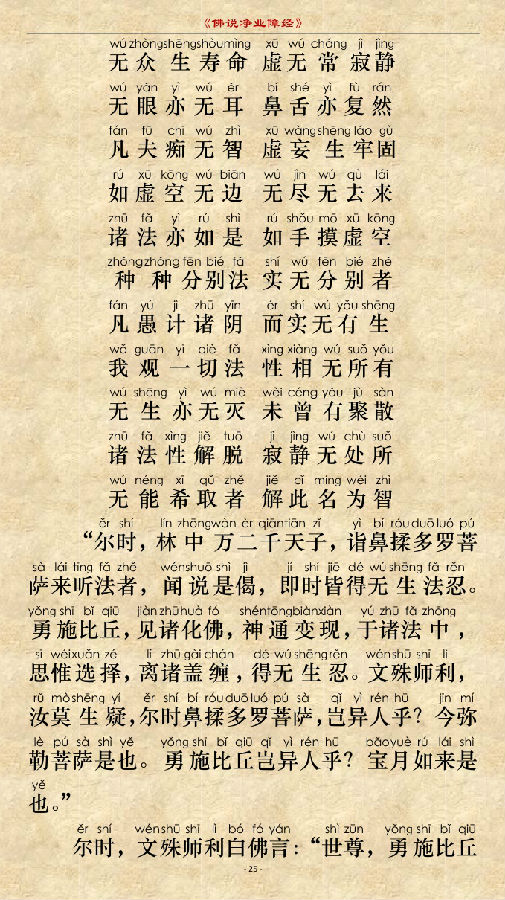 《佛说净业障经》
wú zhòng shēng shòu mìng xū wú cháng jì jìng
无众生寿命 虚无常寂静
wú yǎn yì wú ěr bí shé yì fù rán
无眼亦无耳 鼻舌亦复然
fán fū chī wú zhì xū wàng shēng láo gù
凡夫痴无智 虚妄生牢固
rú xū kōng wú biān wú jìn wú qù lái
如虚空无边 无尽无去来
zhū fǎ yì rú shì rú shǒu mō xū kōng
诸法亦如是 如手摸虚空
zhǒng zhǒng fēn bié fǎ shí wú fēn bié zhě
种种分别法 实无分别者
fán yú jì zhū yīn ér shí wú yǒu shēng
凡愚计诸阴 而实无有生
wǒ guān yí qiè fǎ xìng xiàng wú suǒ yǒu
我观一切法 性相无所有
wú shēng yì wú miè wèi céng yǒu jù sàn
无生亦无灭 未曾有聚散
zhū fǎ xìng jiě tuō jì jìng wú chù suǒ
诸法性解脱 寂静无处所
wú néng xī qǔ zhě jiě cǐ míng wéi zhì
无能希取者 解此名为智
ěr shí lín zhōng wàn èr qiān tiān zǐ yì bí róu duō luó pú
“尔时，林中万二千天子，诣鼻揉多罗菩
sà lái tīng fǎ zhě wén shuō shì jì jí shí jiē dé wú shēng fǎ rěn
萨来听法者，闻说是偈，即时皆得无生法忍。
yǒng shī bǐ qiū jiàn zhū huà fó shén tōng biàn xiàn yú zhū fǎ zhōng
勇施比丘，见诸化佛，神通变现，于诸法中，
sī wéi xuǎn zé lí zhū gài chán dé wú shēng rěn wén shū shī lì
思惟选择，离诸盖缠，得无生忍。文殊师利，
rǔ mò shēng yí ěr shí bí róu duō luó pú sà qǐ yì rén hū jīn mí
汝莫生疑，尔时鼻揉多罗菩萨，岂异人乎？今弥
lè pú sà shì yě yǒng shī bǐ qiū qǐ yì rén hū bǎo yuè rú lái shì
勒菩萨是也。勇施比丘岂异人乎？宝月如来是
yě
也。”
ěr shí wén shū shī lì bó fó yán shì zūn yǒng shī bǐ qiū
尔时，文殊师利白佛言：“世尊，勇施比丘
- 25 -